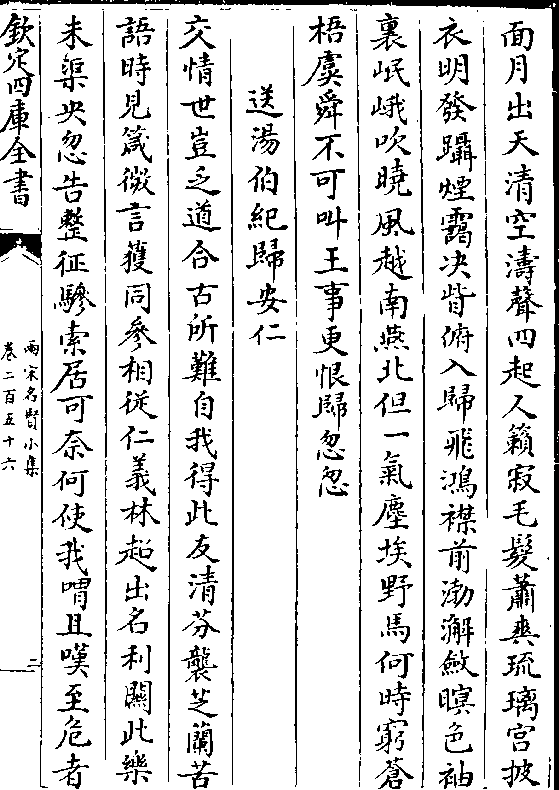 面月出天清空濤聲四起人籟寂毛髮蕭爽琉璃宮披
衣明發躡煙靄决眥俯入歸飛鴻襟前渤澥斂暝色袖
裏岷峨吹曉風越南燕北但一氣塵埃野馬何時窮蒼
梧虞舜不可叫王事更恨歸忽忽
送湯伯紀歸安仁
交情世豈乏道合古所難自我得此友清芬襲芝蘭苦
語時見箴微言獲同參相從仁義林超出名利關此樂
未渠央忽告整征驂索居可奈何使我喟且嘆至危者
欽定四庫全書
兩宋名賢小集
卷二百五十六
二